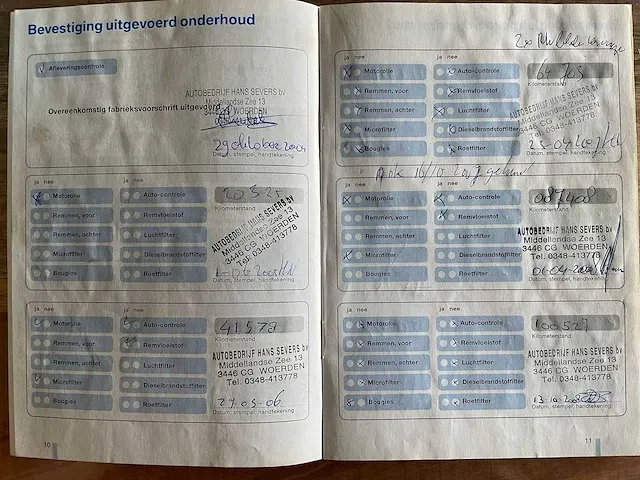 Bevestiging uitgevoerd onderhoud
Afleveringscontrole
AUTOBEDRIJF HANS SEVERS bv
Middellandse Zee 13
3446 CG WOERDEN
Overeenkomstig fabrieksvoorschrift uitgevoerd
29 oktober 2004
Datum, stempel, handtekening
ja nee
Motorolie Auto-controle
Remmen, voor Remvloeistof
Remmen, achter Luchtfilter
Microfilter Dieselbrandstoffilter
Bougies Roetfilter
20325
Kilometerstand
AUTOBEDRIJF HANS SEVERS bv
Middellandse Zee 13
3446 CG WOERDEN
Tel. 0348-413778
Datum, stempel, handtekening
ja nee
Motorolie Auto-controle
Remmen, voor Remvloeistof
Remmen, achter Luchtfilter
Microfilter Dieselbrandstoffilter
Bougies Roetfilter
41578
Kilometerstand
AUTOBEDRIJF HANS SEVERS bv
Middellandse Zee 13
3446 CG WOERDEN
Tel. 0348-413778
29-05-06
Datum, stempel, handtekening
10
ja nee
Motorolie Auto-controle
Remmen, voor Remvloeistof
Remmen, achter Luchtfilter
Microfilter Dieselbrandstoffilter
Bougies Roetfilter
64703
Kilometerstand
AUTOBEDRIJF HANS SEVERS bv
Middellandse Zee 13
3446 CG WOERDEN
Tel. 0348-413778
Datum, stempel, handtekening
ja nee
Motorolie Auto-controle
Remmen, voor Remvloeistof
Remmen, achter Luchtfilter
Microfilter Dieselbrandstoffilter
Bougies Roetfilter
087408
Kilometerstand
AUTOBEDRIJF HANS SEVERS bv
Middellandse Zee 13
3446 CG WOERDEN
Tel. 0348-413778
01-04-2008
Datum, stempel, handtekening
ja nee
Motorolie Auto-controle
Remmen, voor Remvloeistof
Remmen, achter Luchtfilter
Microfilter Dieselbrandstoffilter
Bougies Roetfilter
100527
Kilometerstand
AUTOBEDRIJF HANS SEVERS bv
Middellandse Zee 13
3446 CG WOERDEN
Tel. 0348-413778
13-10-2008
Datum, stempel, handtekening
11